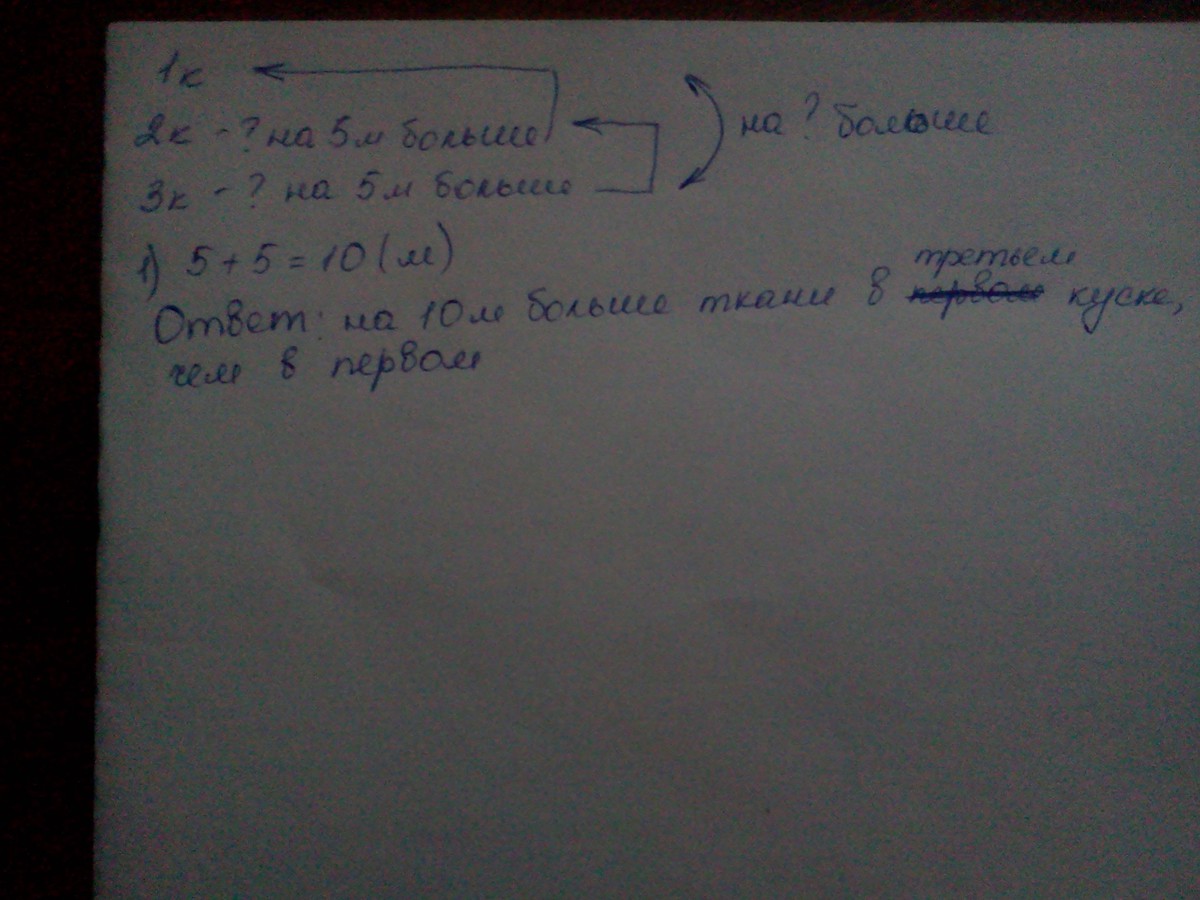 1к
2к - ? на 5м больше
3к - ? на 5м больше
на ? больше
1) 5 + 5 = 10 (м)
третьем
Ответ: на 10м больше ткани в первом куске,
чем в первом